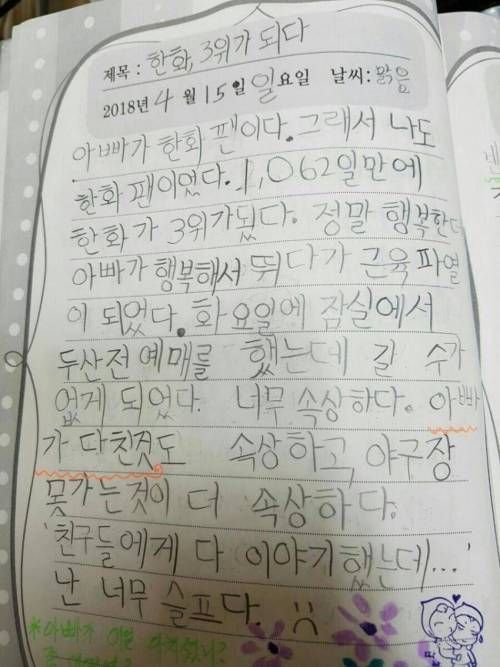 제목: 한화, 3위가 되다
2018년 4월 15일 일요일 날씨: 맑음
아빠가 한화 팬이다. 그래서 나도
한화 팬이었다. 1,062일만에
한화가 3위가됬다. 정말 행복한데
아빠가 행복해서 뛰다가 근육파열
이 되었다. 화요일에 잠실에서
두산전 예매를 했는데 갈 수가
없게 되었다. 너무 속상하다. 아빠
가 다친것도 속상하고, 야구장
못가는것이 더 속상하다.
'친구들에게 다 이야기했는데...'
난 너무 슬프다. :(
*아빠가